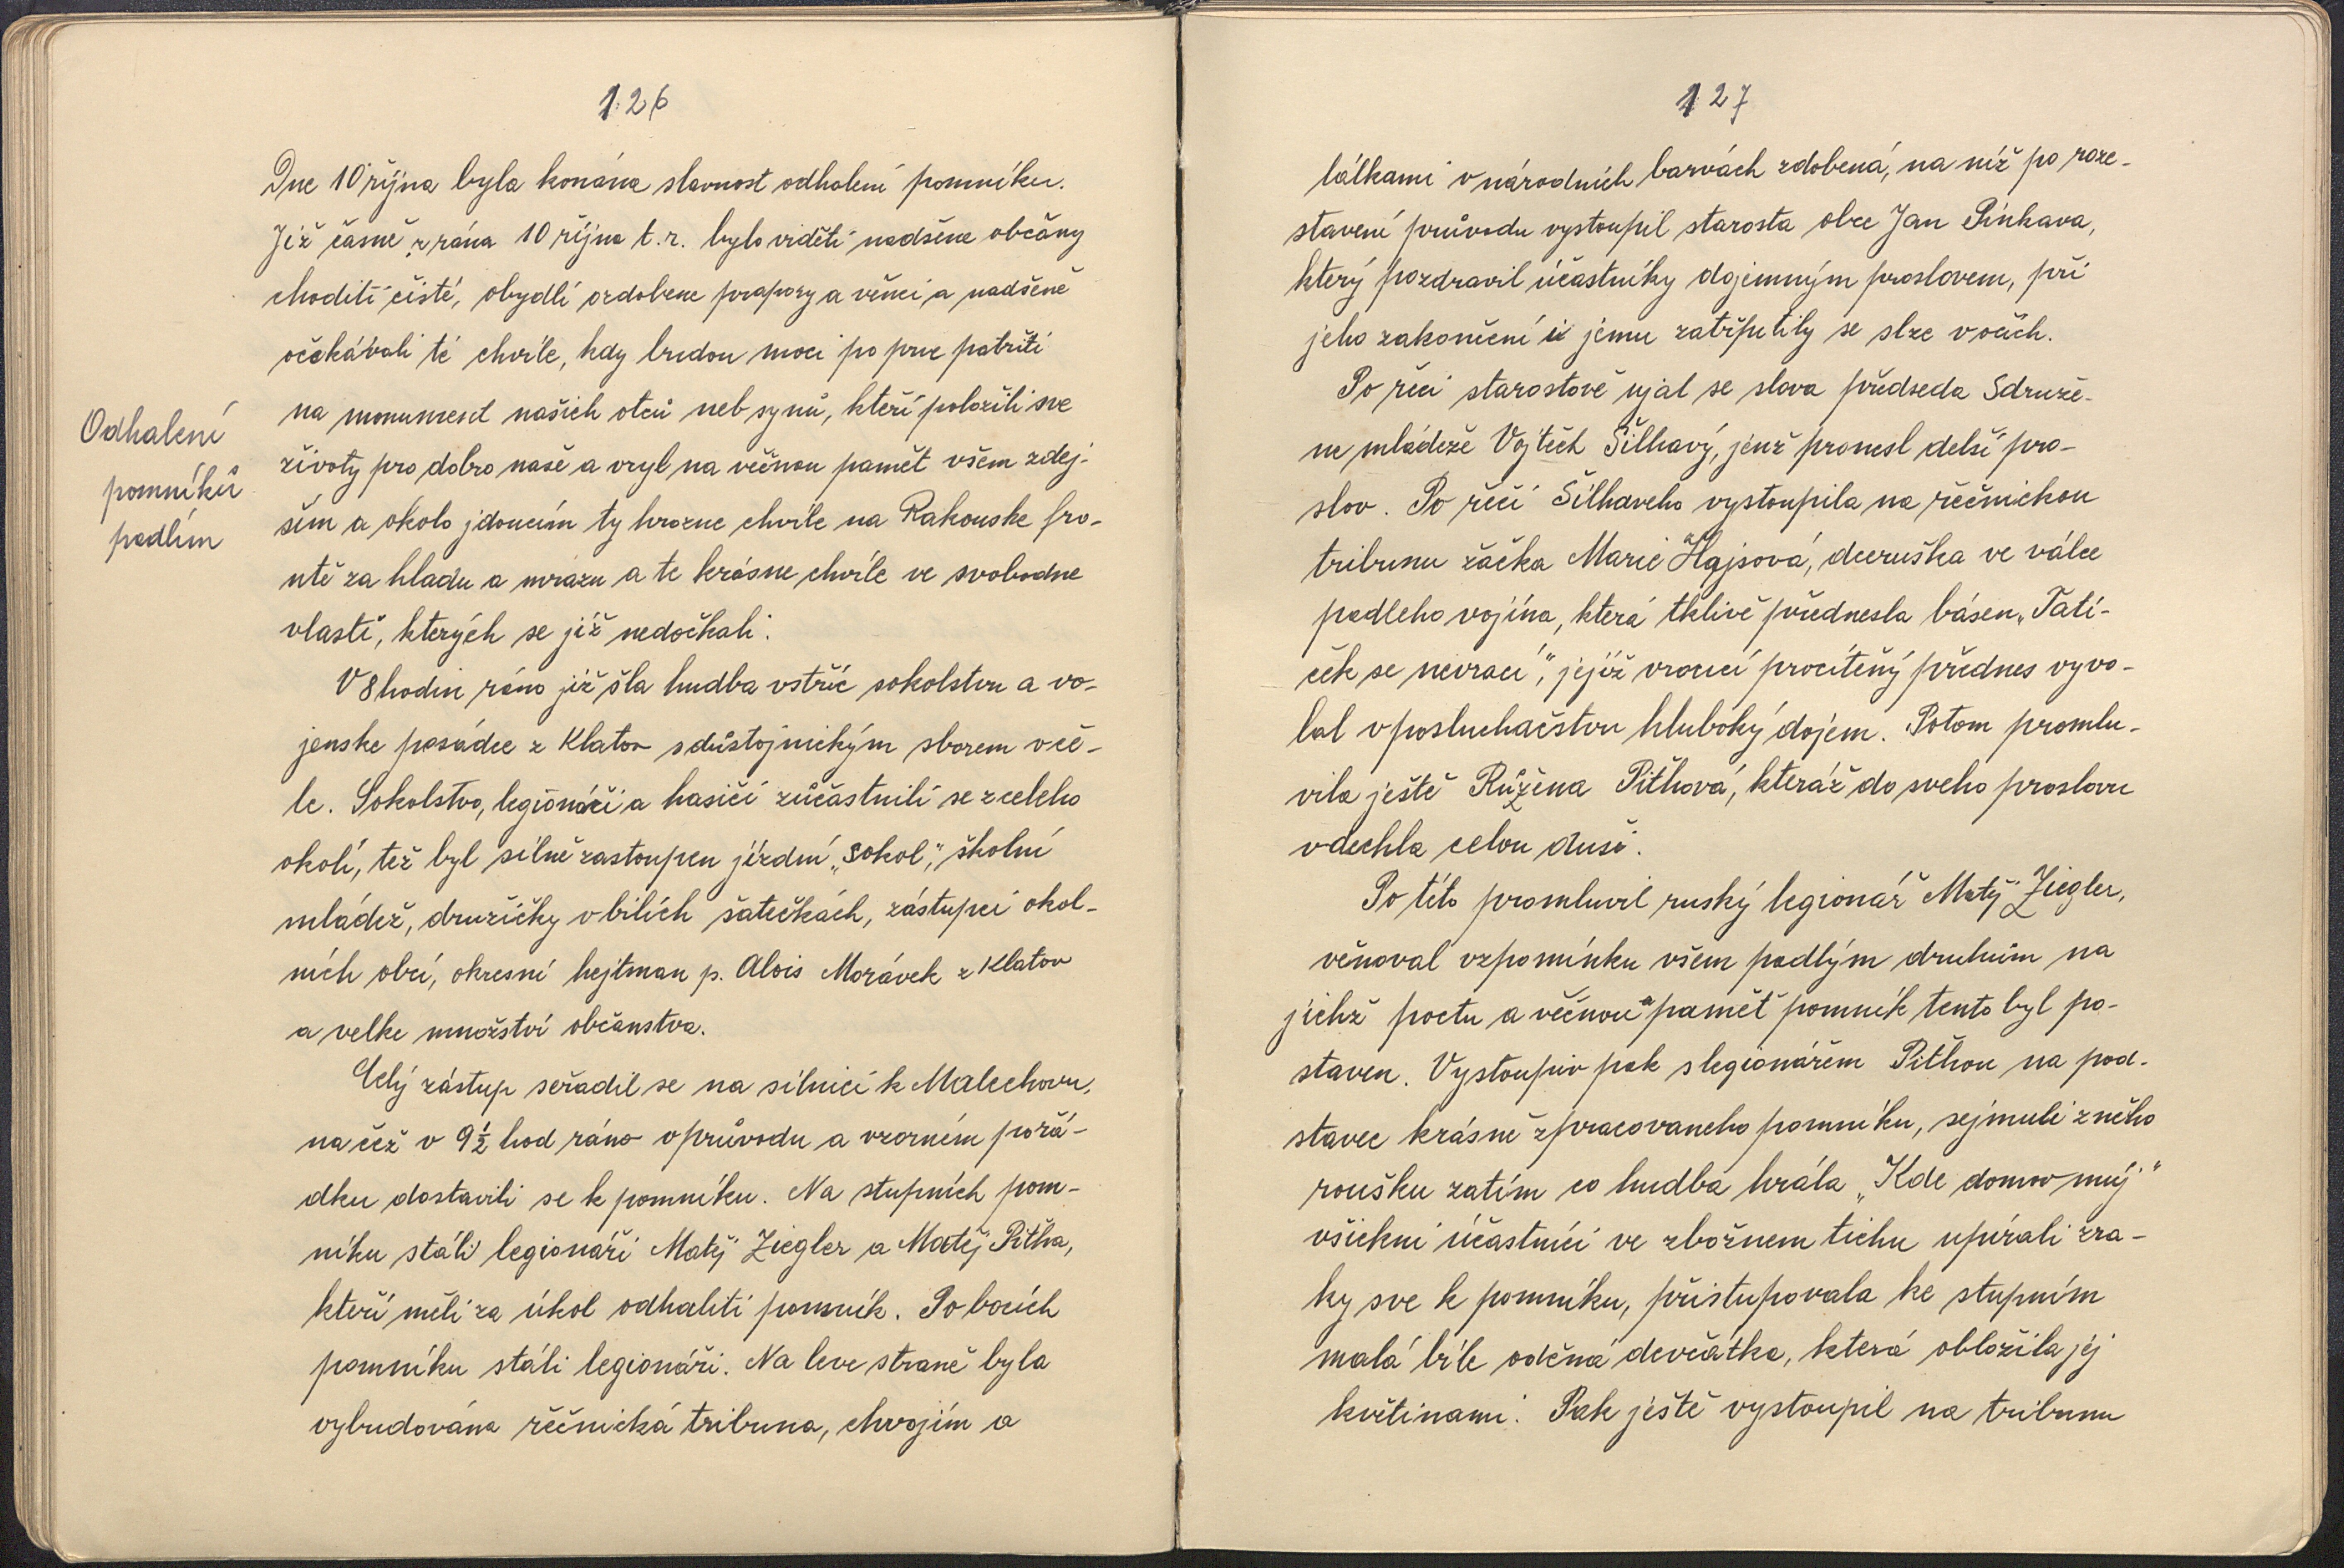 126
Dne 10 října byla konána slavnost odhalení pomníku.
Již časně z rána 10 října t.r. bylo viděti nadšene občany
choditi čistě, obydlí ozdobene prapory a věnci a nadšeně
očekávali té chvíle, kdy budou moci po prve patřiti
na monument našich otců neb synů, kteří položili sve
Odhalení
pomníků
padlím
životy pro dobro naše a vryl na věčnou pamět všem zdej-
ším a okolo jdoucím ty hrozne chvíle na Rakouske fro-
ntě za hladu a mrazu a te krásne chvíle ve svobodne
vlasti, kterých se již nedočkali.
V 8 hodin ráno již šla hudba vstříc sokolstvu a vo-
jenske posádce z Klatov s důstojnickým sborem v če-
le. Sokolstvo, legionáři a hasiči zůčastnili se z celeho
okolí, tež byl silně zastoupen jízdní „Sokol", školní
mládež, družičky v bílích šatečkách, zástupci okol-
ních obcí, okresní hejtman p. Alois Morávek z Klatov
a velke množství občanstva.
Celý zástup seřadil se na silnici k Malechovu,
na čež v 9½ hod ráno v průvodu a vzorném pořá-
dku dostavili se k pomníku. Na stupních pom-
níku stáli legionáři Matěj Ziegler a Matěj Pitha,
kteří měli za úkol odhaliti pomník. Po bocích
pomníku stáli legionáři. Na leve straně byla
vybudována řečnická tribuna, chvojím a
127
látkami v národních barvách zdobená, na níž po roze-
stavení průvodu vystoupil starosta obce Jan Pinkava,
který pozdravil účastníky dojemným proslovem, při
jeho zakončení i jemu zatřpytily se slze v očích.
Po řeči starostově ujal se slova předseda Sdruže-
ne mládeže Vojtěch Šilhavý, jenž pronesl delší pro-
slov. Po řeči Šilhaveho vystoupila na řečnickou
tribunu žačka Marie Hajsová, dceruška ve válce
padleho vojína, která tklivě přednesla básen „Tati-
ček se nevrací", jejíž vroucí procítěný přednes vyvo-
lal v posluchačstvu hluboký dojem. Potom promlu-
vila ještě Růžena Pithová, kteráž do sveho proslovu
vdechla celou duši.
Po této promluvil ruský legionář Matěj Ziegler,
věnoval vzpomínku všem padlým druhům na
jichž poctu a věčnou pamět pomník tento byl po-
staven. Vystoupiv pak s legionářem Pithou na pod-
stavec krásně zpracovaneho pomníku, sejmuli z něho
roušku zatím co hudba hrála „Kde domov můj"
všichni účastníci ve zbožnem tichu upírali zra-
ky sve k pomníku, přistupovala ke stupním
malá bíle oděná devčátka, která obložila jej
květinami. Pak ještě vystoupil na tribunu